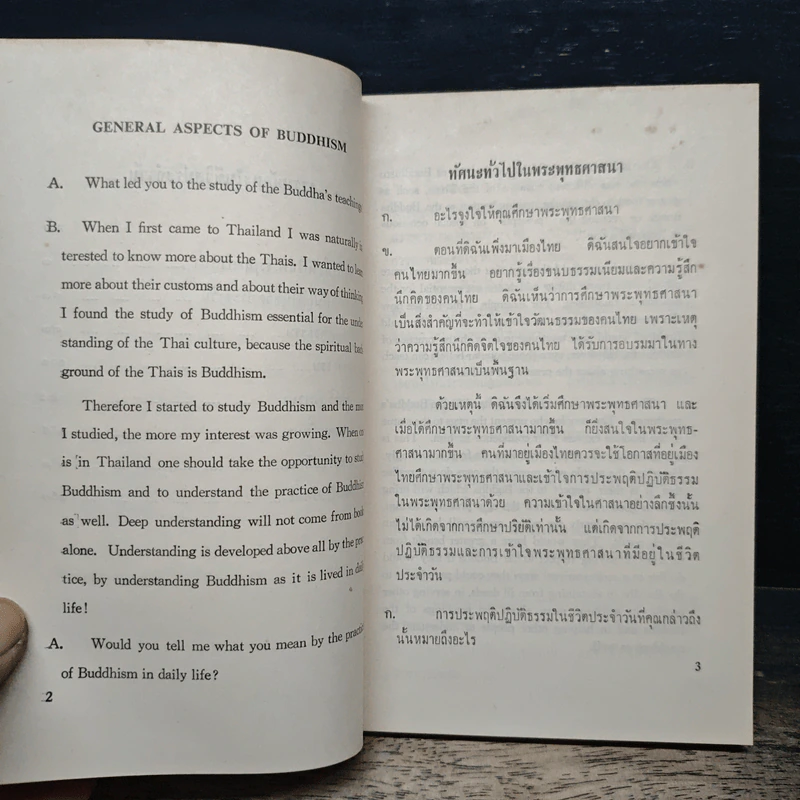 GENERAL ASPECTS OF BUDDHISM
A. What led you to the study of the Buddha's teaching
B. When I first came to Thailand I was naturally in
terested to know more about the Thais. I wanted to
more about their customs and about their way of thinking
I found the study of Buddhism essential for the under
standing of the Thai culture, because the spiritual back
ground of the Thais is Buddhism.
Therefore I started to study Buddhism and the
I studied, the more my interest was growing. When
is in Thailand one should take the opportunity to
Buddhism and to understand the practice of Buddhism
as well. Deep understanding will not come from
alone. Understanding is developed above all by the
tice, by understanding Buddhism as it is lived in
life!
A. Would you tell me what you mean by the
of Buddhism in daily life?
2
ทัศนะทั่วไปในพระพุทธศาสนา
ก. อะไรจูงใจให้คุณศึกษาพระพุทธศาสนา
ข. ตอนที่ดิฉันเพิ่งมาเมืองไทย ดิฉันสนใจอยากเข้าใจ
คนไทยมากขึ้น อยากรู้เรื่องขนบธรรมเนียมและความรู้สึก
นึกคิดของคนไทย ดิฉันเห็นว่าการศึกษาพระพุทธศาสนา
เป็นสิ่งสำคัญที่จะทำให้เข้าใจวัฒนธรรมของคนไทย เพราะเหตุ
ว่าความรู้สึกนึกคิดจิตใจของคนไทย ได้รับการอบรมมาในทาง
พระพุทธศาสนาเป็นพื้นฐาน
ด้วยเหตุนี้ ดิฉันจึงได้เริ่มศึกษาพระพุทธศาสนา และ
เมื่อได้ศึกษาพระพุทธศาสนามากขึ้น ก็ยิ่งสนใจในพระพุทธ-
ศาสนามากขึ้น คนที่มาอยู่เมืองไทยควรจะใช้โอกาสที่อยู่เมือง
ไทยศึกษาพระพุทธศาสนาและเข้าใจการประพฤติปฏิบัติธรรม
ในพระพุทธศาสนาด้วย ความเข้าใจในศาสนาอย่างลึกซึ้งนั้น
ไม่ได้เกิดจากการศึกษาปริยัติเท่านั้น แต่เกิดจากการประพฤติ
ปฏิบัติธรรมและการเข้าใจพระพุทธศาสนาที่มีอยู่ในชีวิต
ประจำวัน
ก. การประพฤติปฏิบัติธรรมในชีวิตประจำวันที่คุณกล่าวถึง
นั้นหมายถึงอะไร
3